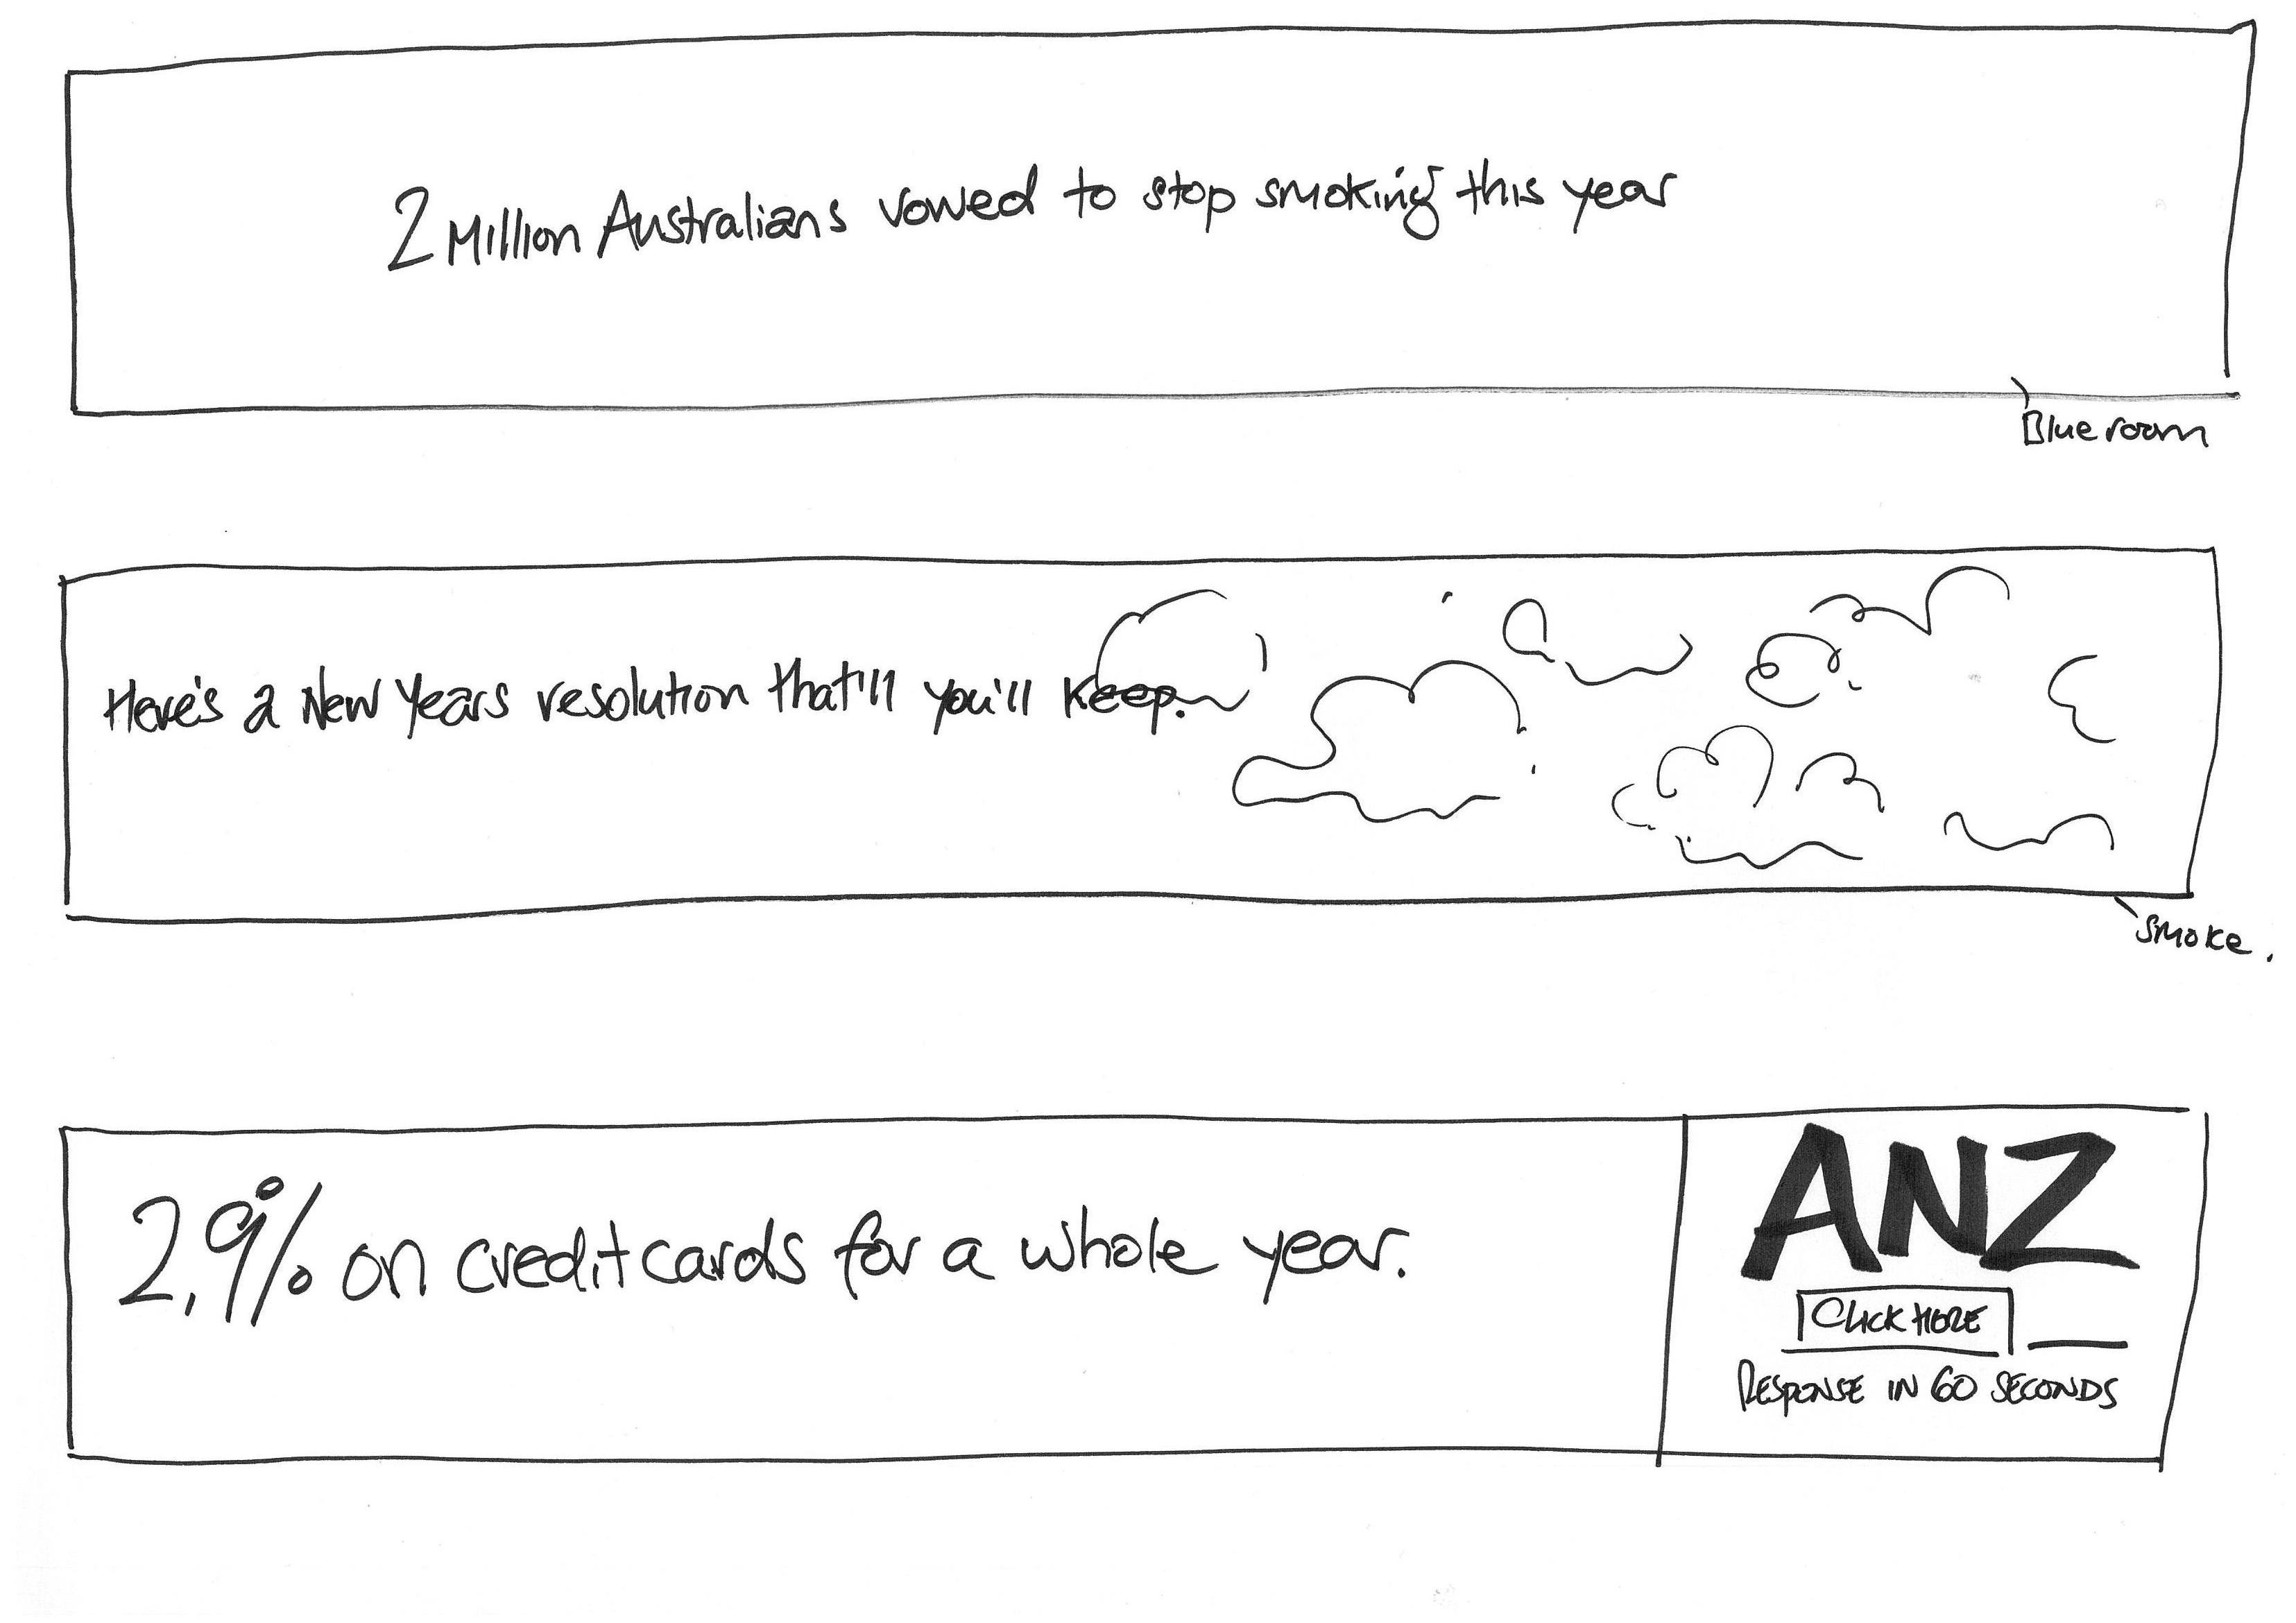 2 Million Australians vowed to stop smoking this year
Blue room
Here's a New Years resolution that'll you'll keep.
Smoke.
2.9% on credit cards for a whole year.
ANZ
CLICK HERE
RESPONSE IN 60 SECONDS